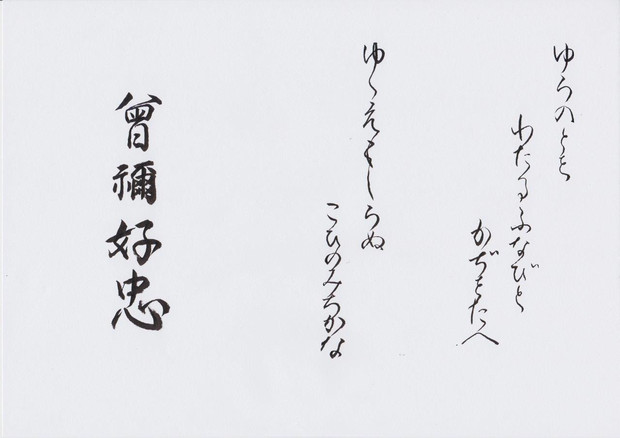 ゆらのとを
わたるふなびと
かぢをたへ
ゆくえもしらぬ
こひのみちかな
曾禰好忠